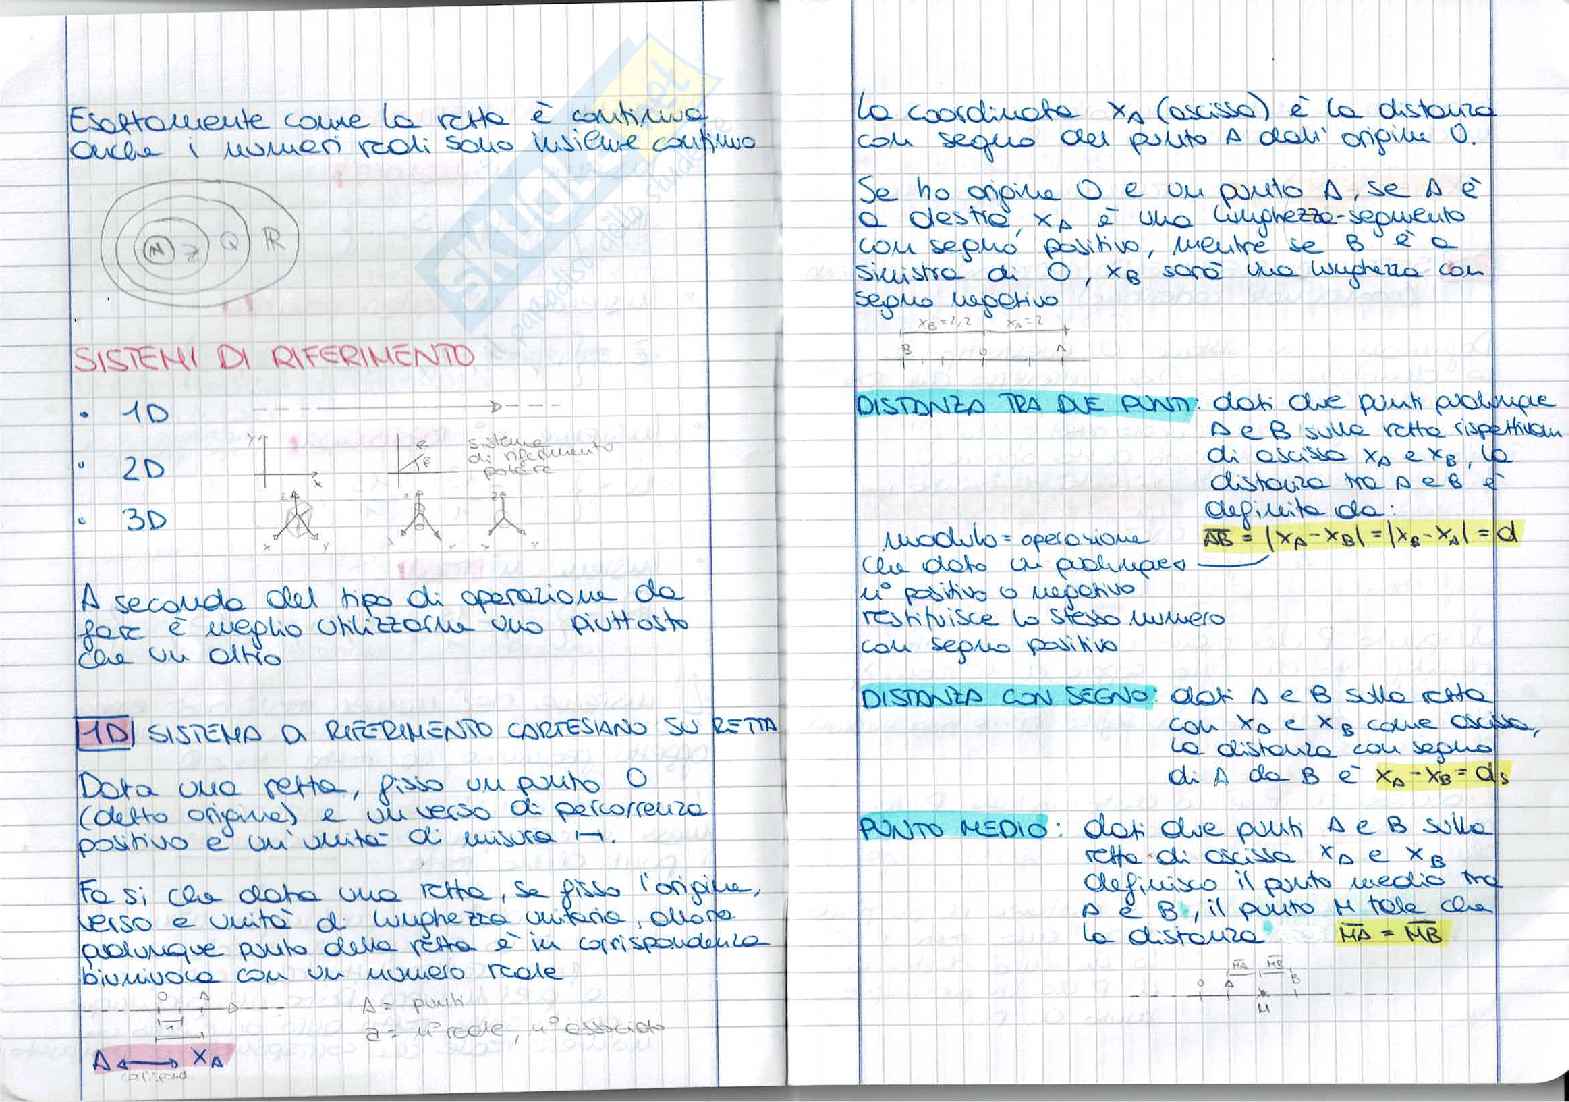 Esattamente come la retta è continua
anche i numeri reali sono insieme continuo
N Z Q R
SISTEMI DI RIFERIMENTO
• 1D
• 2D
y
x
sistema
di riferimento
polare
• 3D
A seconda del tipo di operazione da
fare è meglio utilizzarne uno piuttosto
che un altro
1D SISTEMA DI RIFERIMENTO CARTESIANO SU RETTA
Data una retta, fisso un punto O
(detto origine) e un verso di percorrenza
positivo e un'unità di misura
Fa si che data una retta, se fisso l'origine,
verso e unità di lunghezza unitaria, allora
qualunque punto della retta è in corrispondenza
biunivoca con un numero reale
O A
1
A = punti
a = n° reale, n° associato
A ↔ xA
La coordinata xA (ascissa) è la distanza
con segno del punto A dall'origine O.
Se ho origine O e un punto A, se A è
a destra, xA è una lunghezza-segmento
con segno positivo, mentre se B è a
sinistra di O, xB sarà una lunghezza con
segno negativo
xB=1,2 xA=2
B O A
DISTANZA TRA DUE PUNTI: dati due punti qualunque
A e B sulla retta rispettivam
di ascissa xA e xB, la
distanza tra A e B è
definita da:
AB = |xA-xB| = |xB-xA| = d
modulo = operazione
che dato un qualunque
n° positivo o negativo
restituisce lo stesso numero
con segno positivo
DISTANZA CON SEGNO: dati A e B sulla retta
con xA e xB come ascisse,
la distanza con segno
di A da B è xA-xB = ds
PUNTO MEDIO: dati due punti A e B sulla
retta di ascissa xA e xB
definisco il punto medio tra
A e B, il punto M tale che
la distanza MA = MB
MA MB
O A B
M